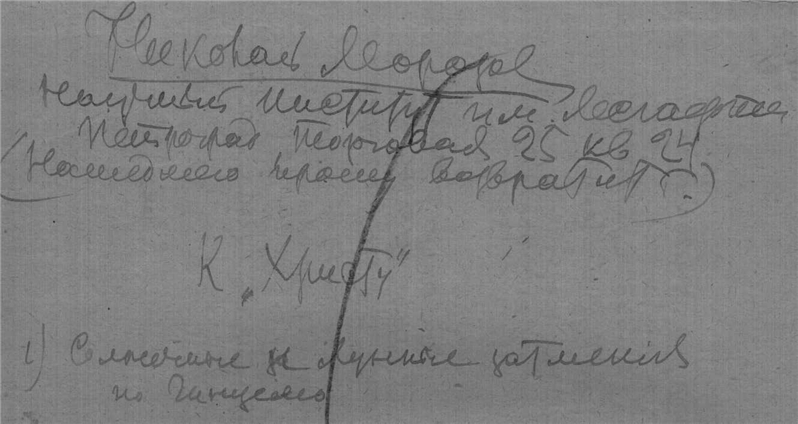 Николай Морозов
Научный Институт им. Лесгафта
Петроград Торговая 25 кв 24
(Нашедшего прошу возвратить)
К „Христу"
1) Солнечные и Лунные затмения
по Гинцелю